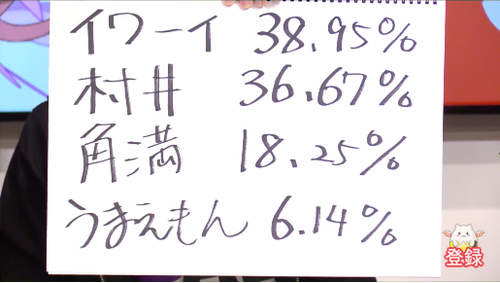 イワーイ 38.95%
村井 36.67%
角満 18.25%
うまえもん 6.14%
登録